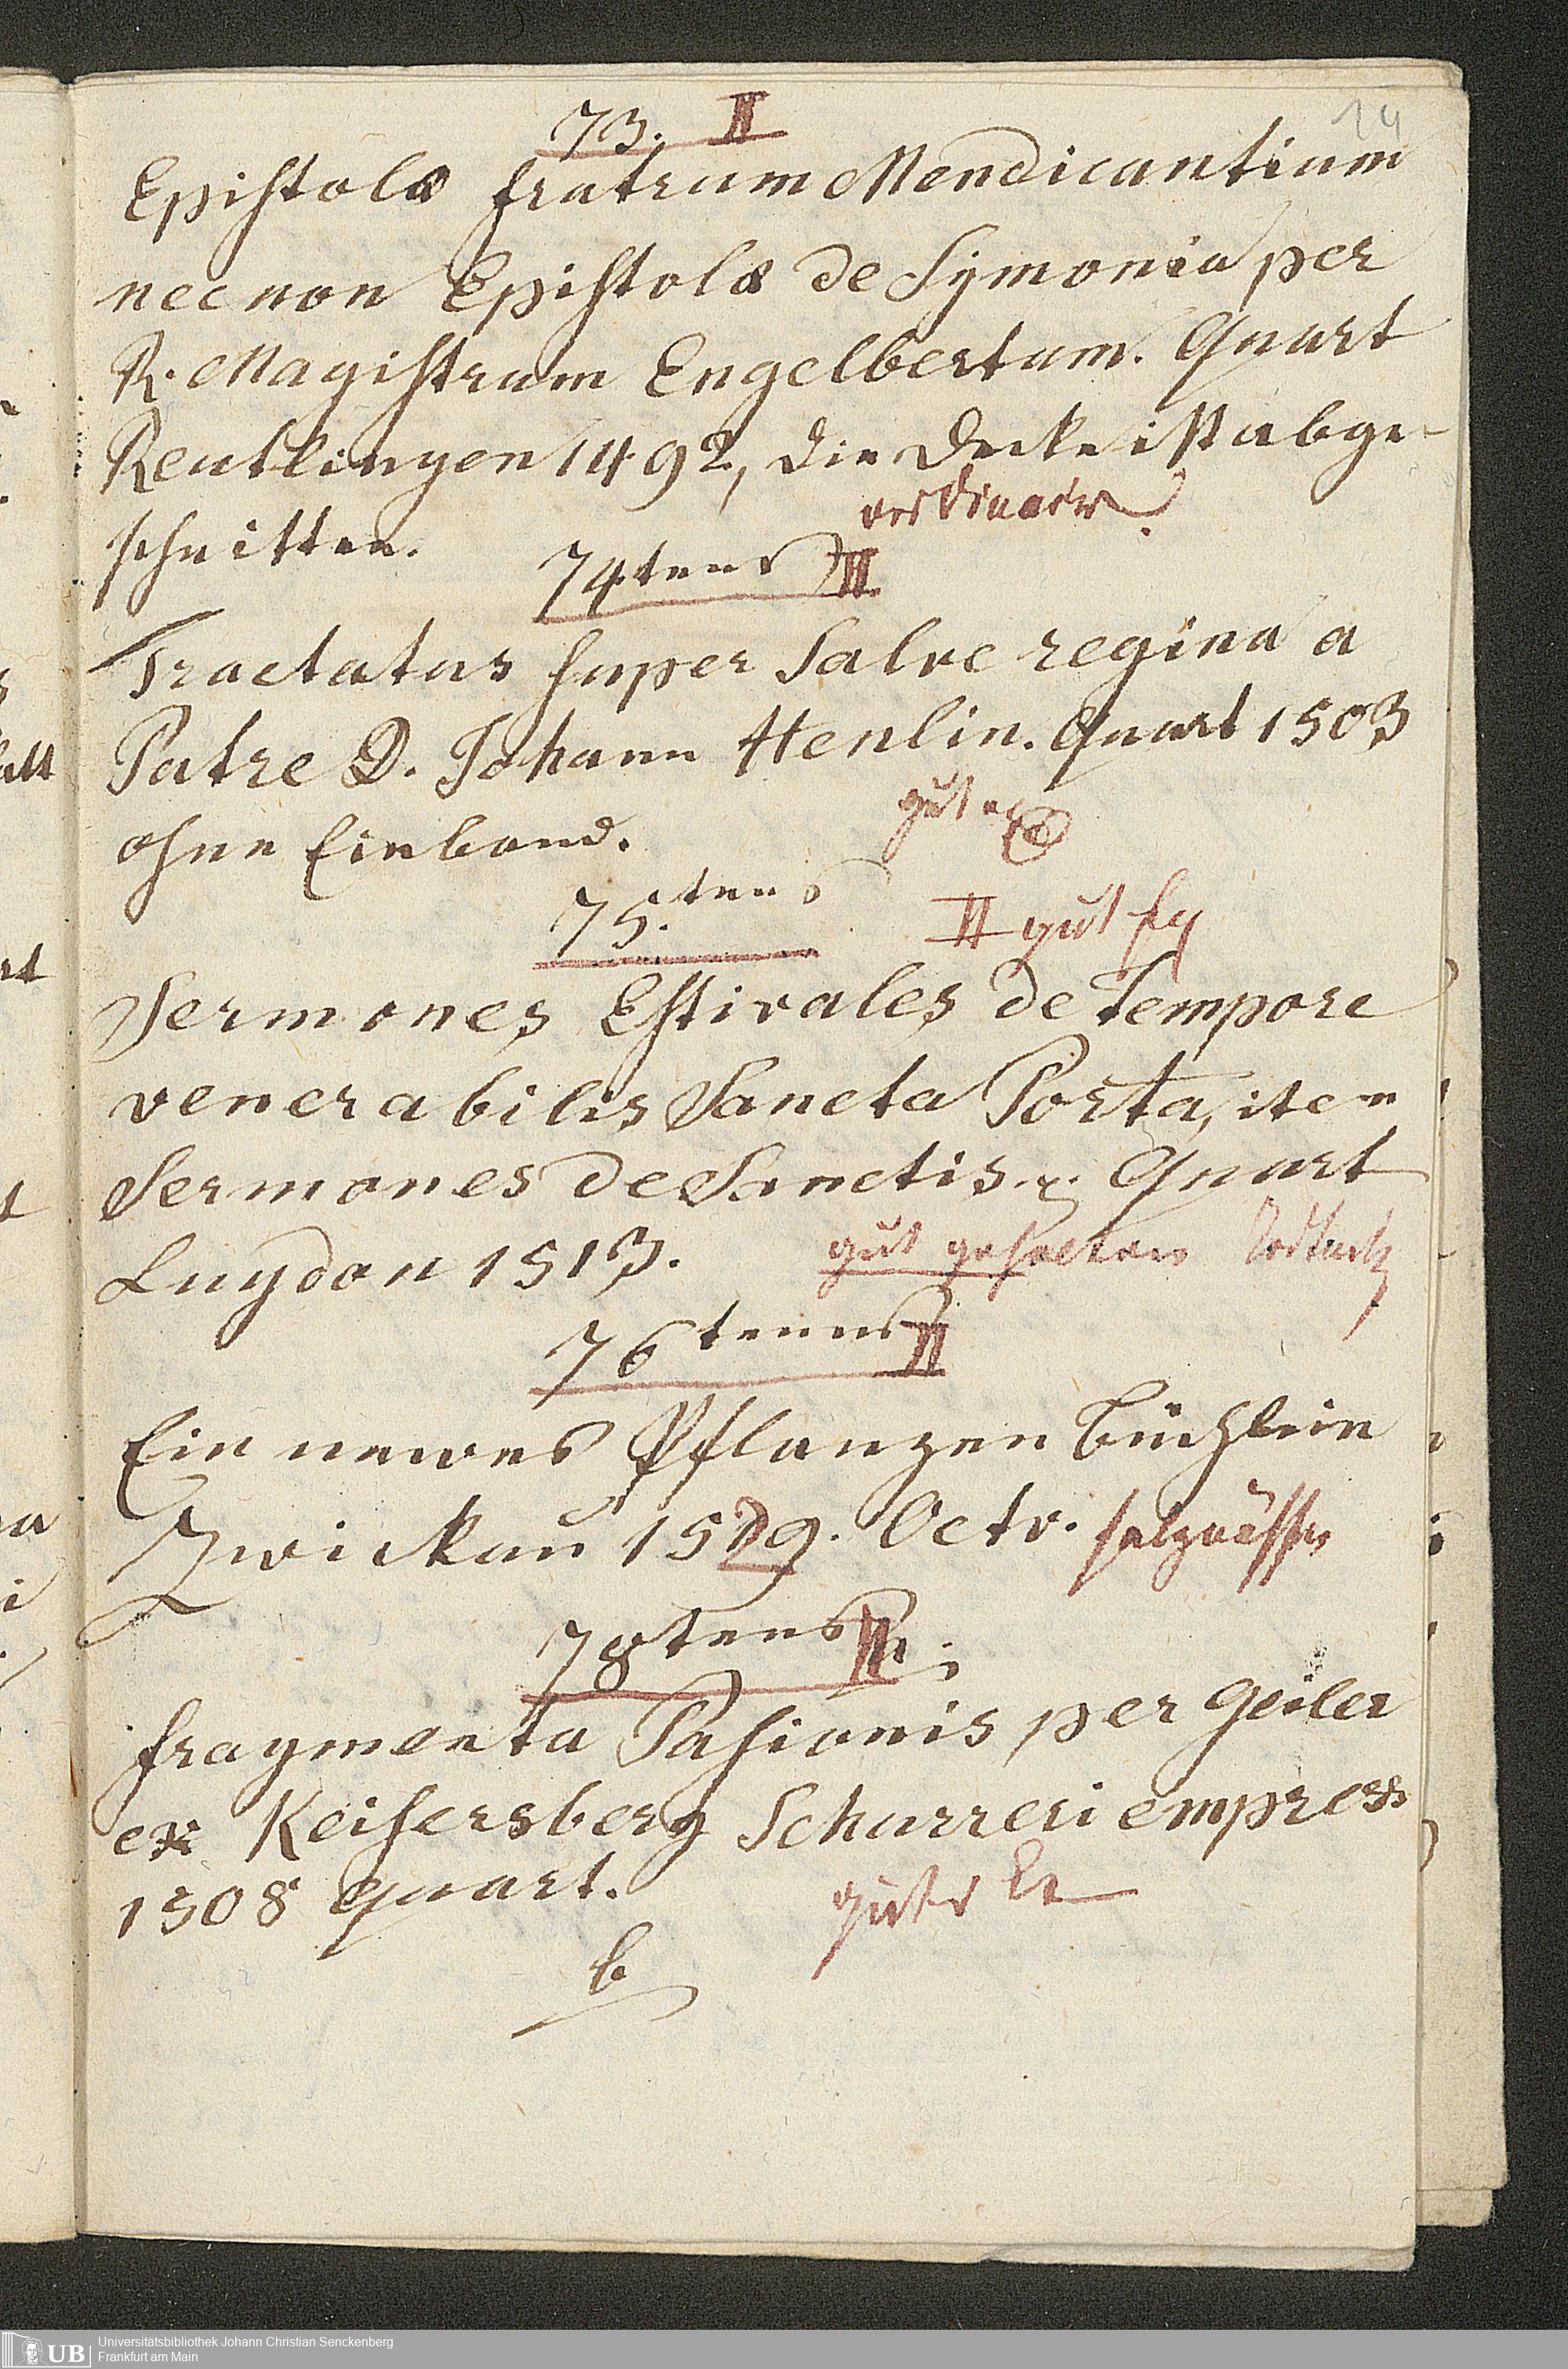 14
73. II
Epistolæ fratrum Mendicantium
nec non Epistolæ de Symonia per
R. Magistrum Engelbertum. Quart
Reutlingen 1492, die Decke ist abge-
schnitten.
ordinair
74tens III
Tractatus super Salve regina a
Patre D. Johann Henlin. Quart 1503
ohne Einband.
gut
75.tens II gut
Sermones Estivales de Tempore
venerabilis Sancta Porta, item
Sermones de Sanctis. Quart
Lugdon 1513.
gut gehalten
76tenns II
Ein newes Pflanzen büchlein
Zwickau 1529. Octv.
78tens II
fragmenta Pasionis per Geiler
ex Keisersberg Schurreri empress
1508 quart.
guter
b
UB
Universitätsbibliothek Johann Christian Senckenberg
Frankfurt am Main